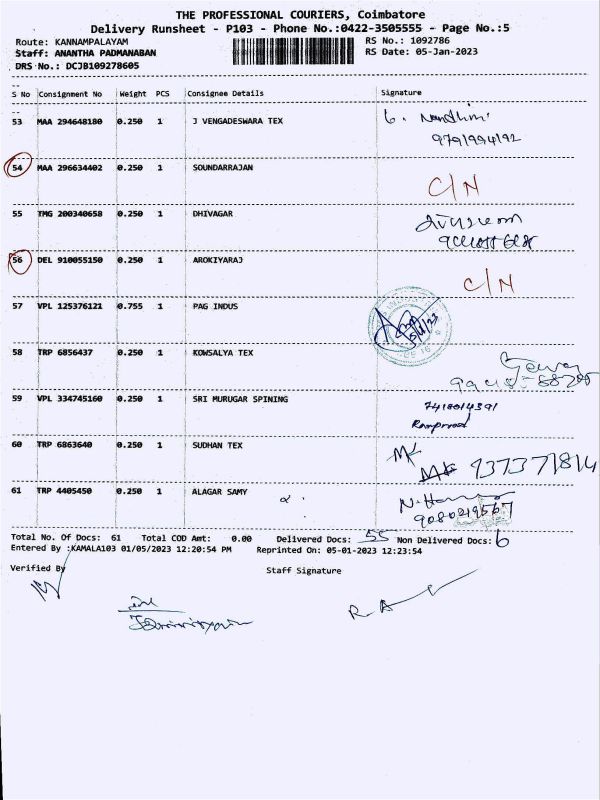 THE PROFESSIONAL COURIERS, Coimbatore
Delivery Runsheet - P103 - Phone No.:0422-3505555 - Page No.:5
Route: KANNAMPALAYAM RS No.: 1092786
Staff: ANANTHA PADMANABAN RS Date: 05-Jan-2023
DRS No.: DCJB109278605
S No Consignment No Weight PCS Consignee Details Signature
53 MAA 294648180 0.250 1 J VENGADESWARA TEX Nandhini
9791994192
54 MAA 296634402 0.250 1 SOUNDARRAJAN C/N
55 TMG 200340658 0.250 1 DHIVAGAR
56 DEL 910055150 0.250 1 AROKIYARAJ C/N
57 VPL 125376121 0.755 1 PAG INDUS
58 TRP 6856437 0.250 1 KOWSALYA TEX
59 VPL 334745160 0.250 1 SRI MURUGAR SPINING 7418014391
60 TRP 6863640 0.250 1 SUDHAN TEX
61 TRP 4405450 0.250 1 ALAGAR SAMY
Total No. Of Docs: 61 Total COD Amt: 0.00 Delivered Docs: 55 Non Delivered Docs: 6
Entered By :KAMALA103 01/05/2023 12:20:54 PM Reprinted On: 05-01-2023 12:23:54
Verified By Staff Signature